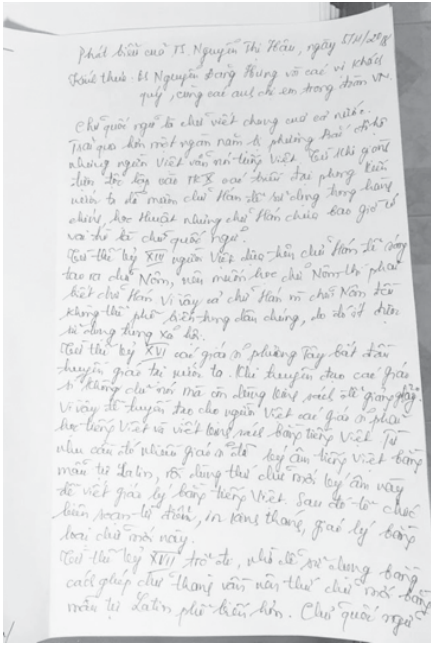 Phát biểu của TS. Nguyễn Thị Hậu, ngày 5/11/2018
Kính thưa GS Nguyễn Đăng Hưng và các vị khách
quý, cùng các anh chị em trong đoàn VN.
Chữ quốc ngữ là chữ viết chung của cả nước.
Trải qua hơn một ngàn năm bị phương Bắc đô hộ
nhưng người Việt vẫn nói tiếng Việt. Từ khi giành
độc lập vào TK X các triều đại phong kiến
nước ta đã mượn chữ Hán để sử dụng trong hành
chính, học thuật nhưng chữ Hán chưa bao giờ có
vai trò là chữ quốc ngữ.
Từ thế kỷ XIII người Việt dựa trên chữ Hán để sáng
tạo ra chữ Nôm, nên muốn học chữ Nôm thì phải
biết chữ Hán. Vì vậy cả chữ Hán và chữ Nôm đều
không thể phổ biến trong dân chúng, do đó ít được
sử dụng trong xã hội.
Từ thế kỷ XVI các giáo sĩ phương Tây bắt đầu
truyền giáo tại nước ta. Khi truyền đạo các giáo
sĩ không chỉ nói mà còn dùng kinh sách để giảng.
Vì vậy để truyền đạo cho người Việt các giáo sĩ phải
học tiếng Việt và viết kinh sách bằng tiếng Việt. Từ
nhu cầu đó nhiều giáo sĩ đã ký âm tiếng Việt bằng
mẫu tự Latin, rồi dùng thứ chữ mới ký âm này
để viết giáo lý bằng tiếng Việt. Sau đó tổ chức
biên soạn từ điển, in kinh thánh, giáo lý bằng
loại chữ mới này.
Từ thế kỷ XVII trở đi, nhờ dễ sử dụng bằng
cách ghép chữ thành vần nên thứ chữ mới bằng
mẫu tự Latin phổ biến hơn. Chữ quốc ngữ